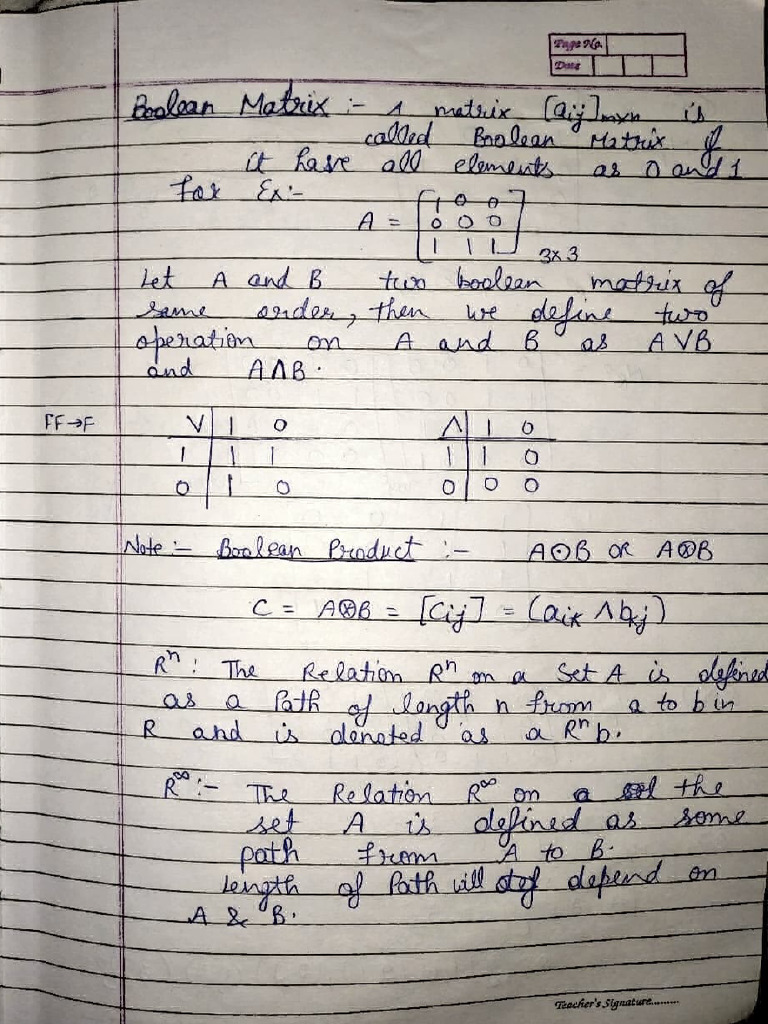 Page No.
Date
Boolean Matrix :- A matrix [aij]mxn is
called Boolean Matrix if
it have all elements as 0 and 1
For Ex:-
A = [1 0 0
0 0 0
1 1 1] 3x3
Let A and B two boolean matrix of
same order, then we define two
operation on A and B as A V B
and A Λ B.
FF→F
V | 1 0 Λ | 1 0
1 | 1 1 1 | 1 0
0 | 1 0 0 | 0 0
Note :- Boolean Product :- A⊙B OR A⊗B
C = A⊗B = [Cij] = (aik Λ bkj)
Rⁿ : The Relation Rⁿ on a Set A is defined
as a Path of length n from a to b in
R and is denoted as a Rⁿ b.
R∞ :- The Relation R∞ on a the
set A is defined as some
path from A to B.
Length of Path will depend on
A & B.
Teacher's Signature.........